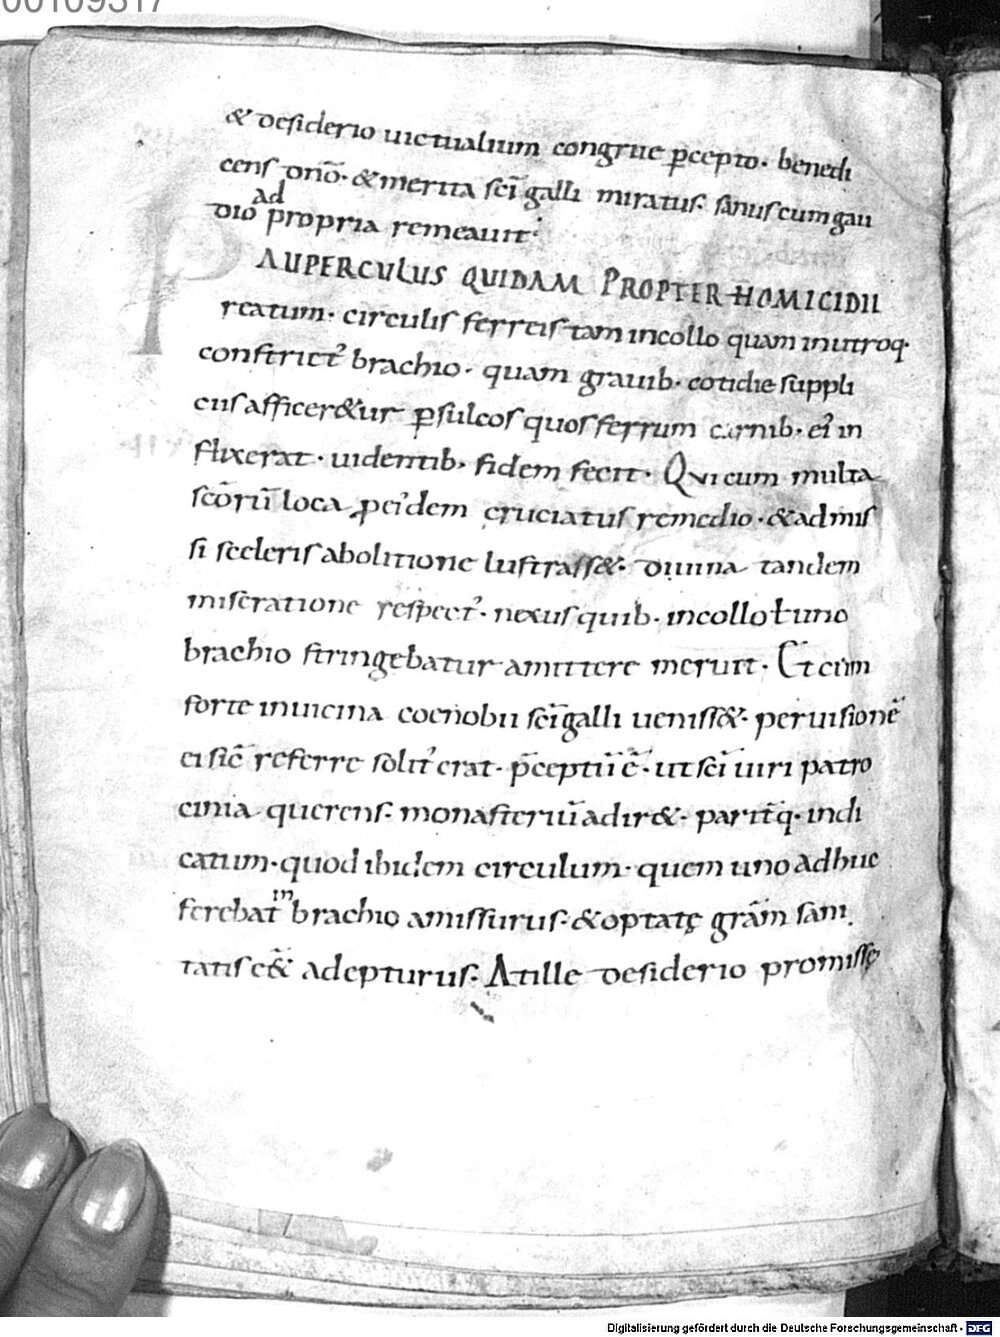 00109317
& desiderio uictualium congrue p̄cepto. benedi
cens dn̄o. & merita sc̄i galli miratus. sanus cum gau
dio ad propria remeauit.
PAUPERCULUS QUIDAM PROPTER HOMICIDII
reatum. circulis ferreis tam in collo quam in utroq.
constrict᾽ brachio. quam grauib. cotidie suppli
ciis afficer&ur ꝑ sulcos quos ferrum carnib. ei᾽ in
flixerat. uidentib. fidem fecit. Qui cum multa
sc̄orū loca ꝓ ei᾽dem cruciatus remedio. & admis
si sceleris abolitione lustrass&. diuina tandem
miseratione respect᾽. nexus quib. in collo ł uno
brachio stringebatur amittere meruit. Et cum
forte in uicina coenobii sc̄i galli ueniss&. per uisionē
ei sic̄ referre solit᾽ erat. p̄ceptū ē. ut sc̄i uiri patro
cinia querens. monasteriū adir&. parit̄q. indi
catum. quod ibidem circulum. quem uno adhuc
ferebat in brachio amissurus. & optatę grām sani
tatis eēt adepturus. At ille desiderio promissę
Digitalisierung gefördert durch die Deutsche Forschungsgemeinschaft - DFG